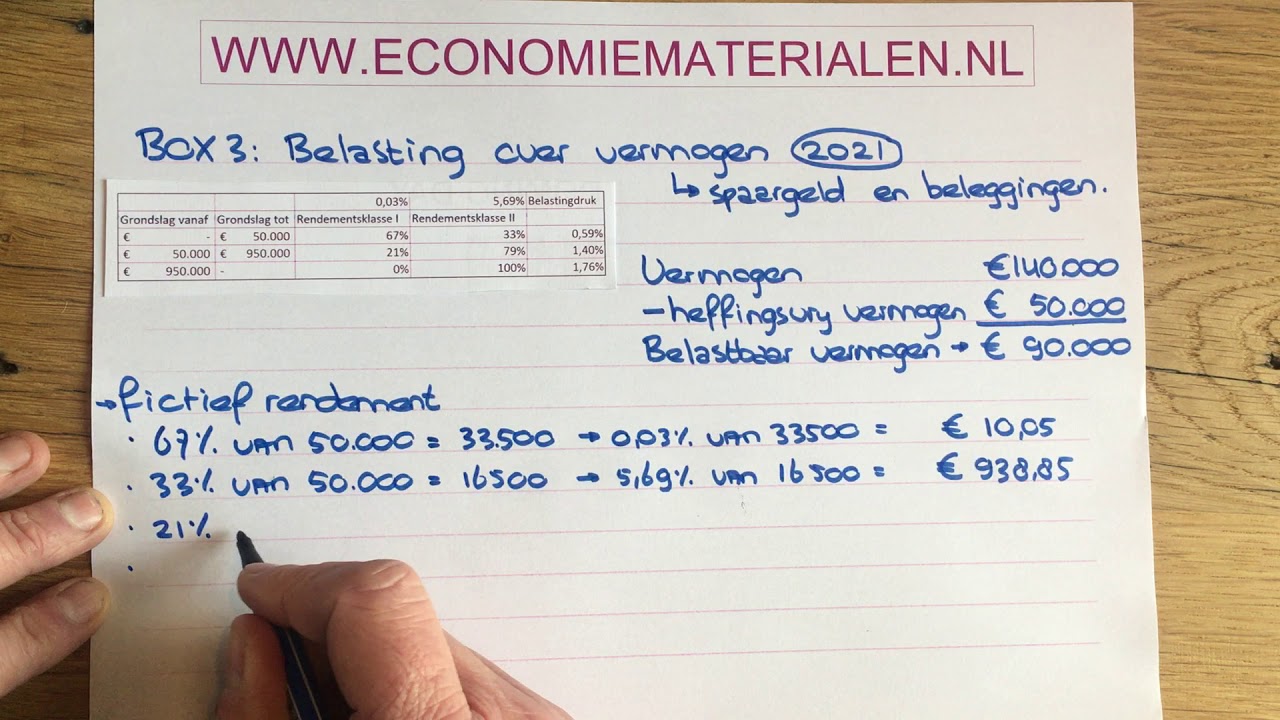 WWW.ECONOMIEMATERIALEN.NL
BOX 3: Belasting over vermogen 2021
↳ spaargeld en beleggingen.
0,03% 5,69% Belastingdruk
Grondslag vanaf Grondslag tot Rendementsklasse I Rendementsklasse II
€ - € 50.000 67% 33% 0,59%
€ 50.000 € 950.000 21% 79% 1,40%
€ 950.000 - 0% 100% 1,76%
Vermogen €140.000
- heffingsvrij vermogen € 50.000
Belastbaar vermogen → € 90.000
→ fictief rendement
· 67% van 50.000 = 33.500 → 0,03% van 33500 = € 10,05
· 33% van 50.000 = 16500 → 5,69% van 16500 = € 938,85
· 21%
·